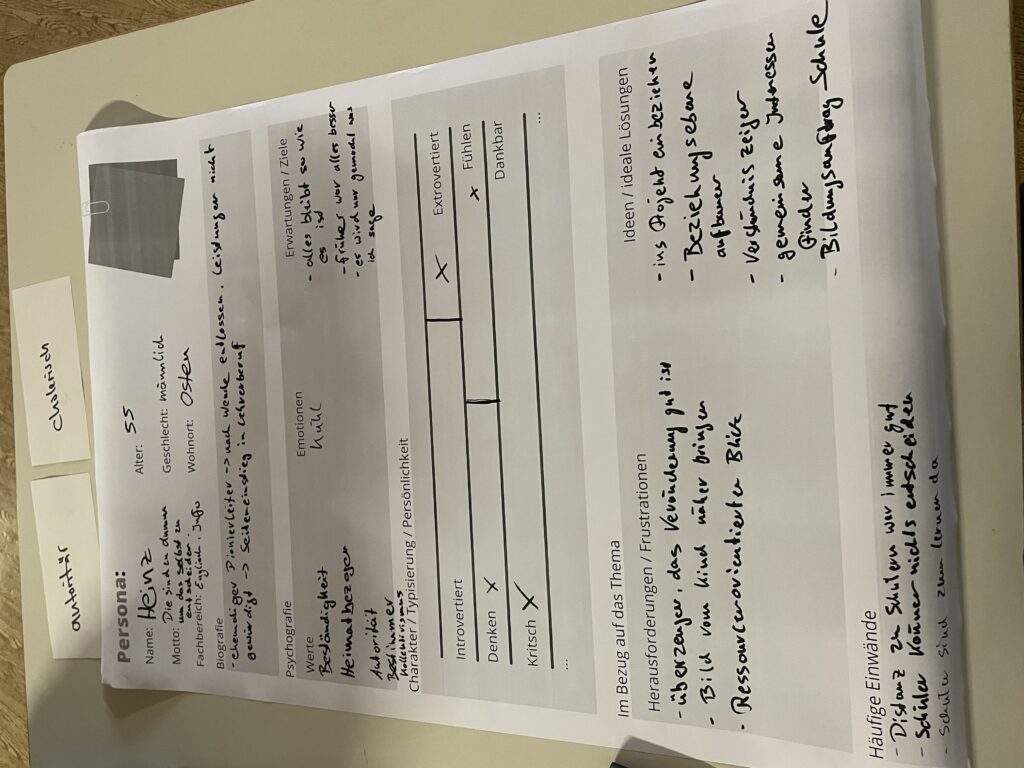 autoritär
cholerisch
Persona:
Name: Heinz
Alter: 55
Motto: Die sind en dumm
um das selbst zu
entscheiden.
Geschlecht: männlich
Fachbereich: Englisch, Info
Wohnort: Osten
Biografie
- ehemaliger Pionierleiter -> nach Wende entlossen. Leistungen nicht
gewürdigt -> Seiteneinstieg in Lehrerberuf
Psychografie
Werte
Beständigkeit
Heimatbezogen
Autorität
Bestimmer
Kollektivismus
Emotionen
kühl
Erwartungen / Ziele
- alles bleibt so wie
es ist
- früher war alles besser
- es wird nur gemacht was
ich sage
Charakter / Typisierung / Persönlichkeit
Introvertiert X Extrovertiert
Denken X x Fühlen
Kritsch X Dankbar
... ...
Im Bezug auf das Thema
Herausforderungen / Frustrationen
- überzeugen, das Veränderung gut ist
- Bild vom Kind näher bringen
- Ressourcenorientierter Blick
Ideen / ideale Lösungen
- ins Projekt einbeziehen
- Beziehungsebene
aufbauen
- Verständnis zeigen
- gemeinsame Interessen
finden
- Bildungsauftrag Schule
Häufige Einwände
- Distanz zu Schülern war immer gut
- Schüler können nichts entscheiden
- Schule sind zum lernen da